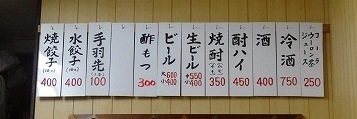 コーラ
ウーロン茶
ジュース
250
冷酒
750
酒
400
酎ハイ
450
焼酎
350
生ビール
中550
小400
ビール
大600
小400
酢もつ
300
手羽先
100
水餃子
400
焼餃子
400